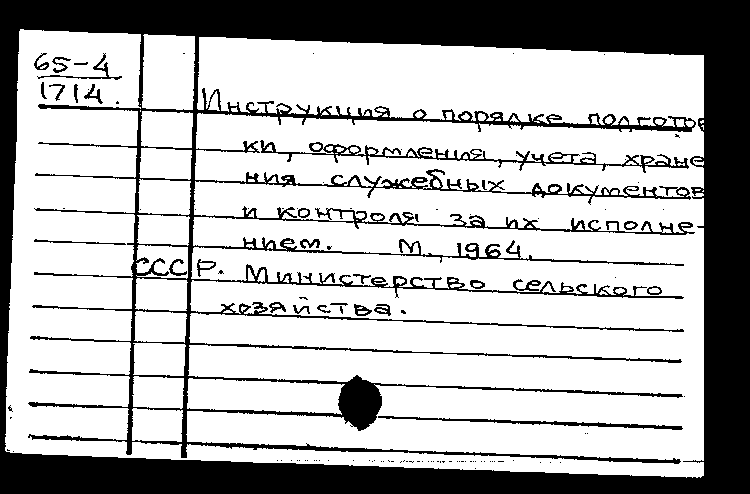 65-4
1714.
Инструкция о порядке подготов
ки, оформления, учета, хране
ния служебных документов
и контроля за их исполне-
нием. М., 1964.
СССР. Министерство сельского
хозяйства.